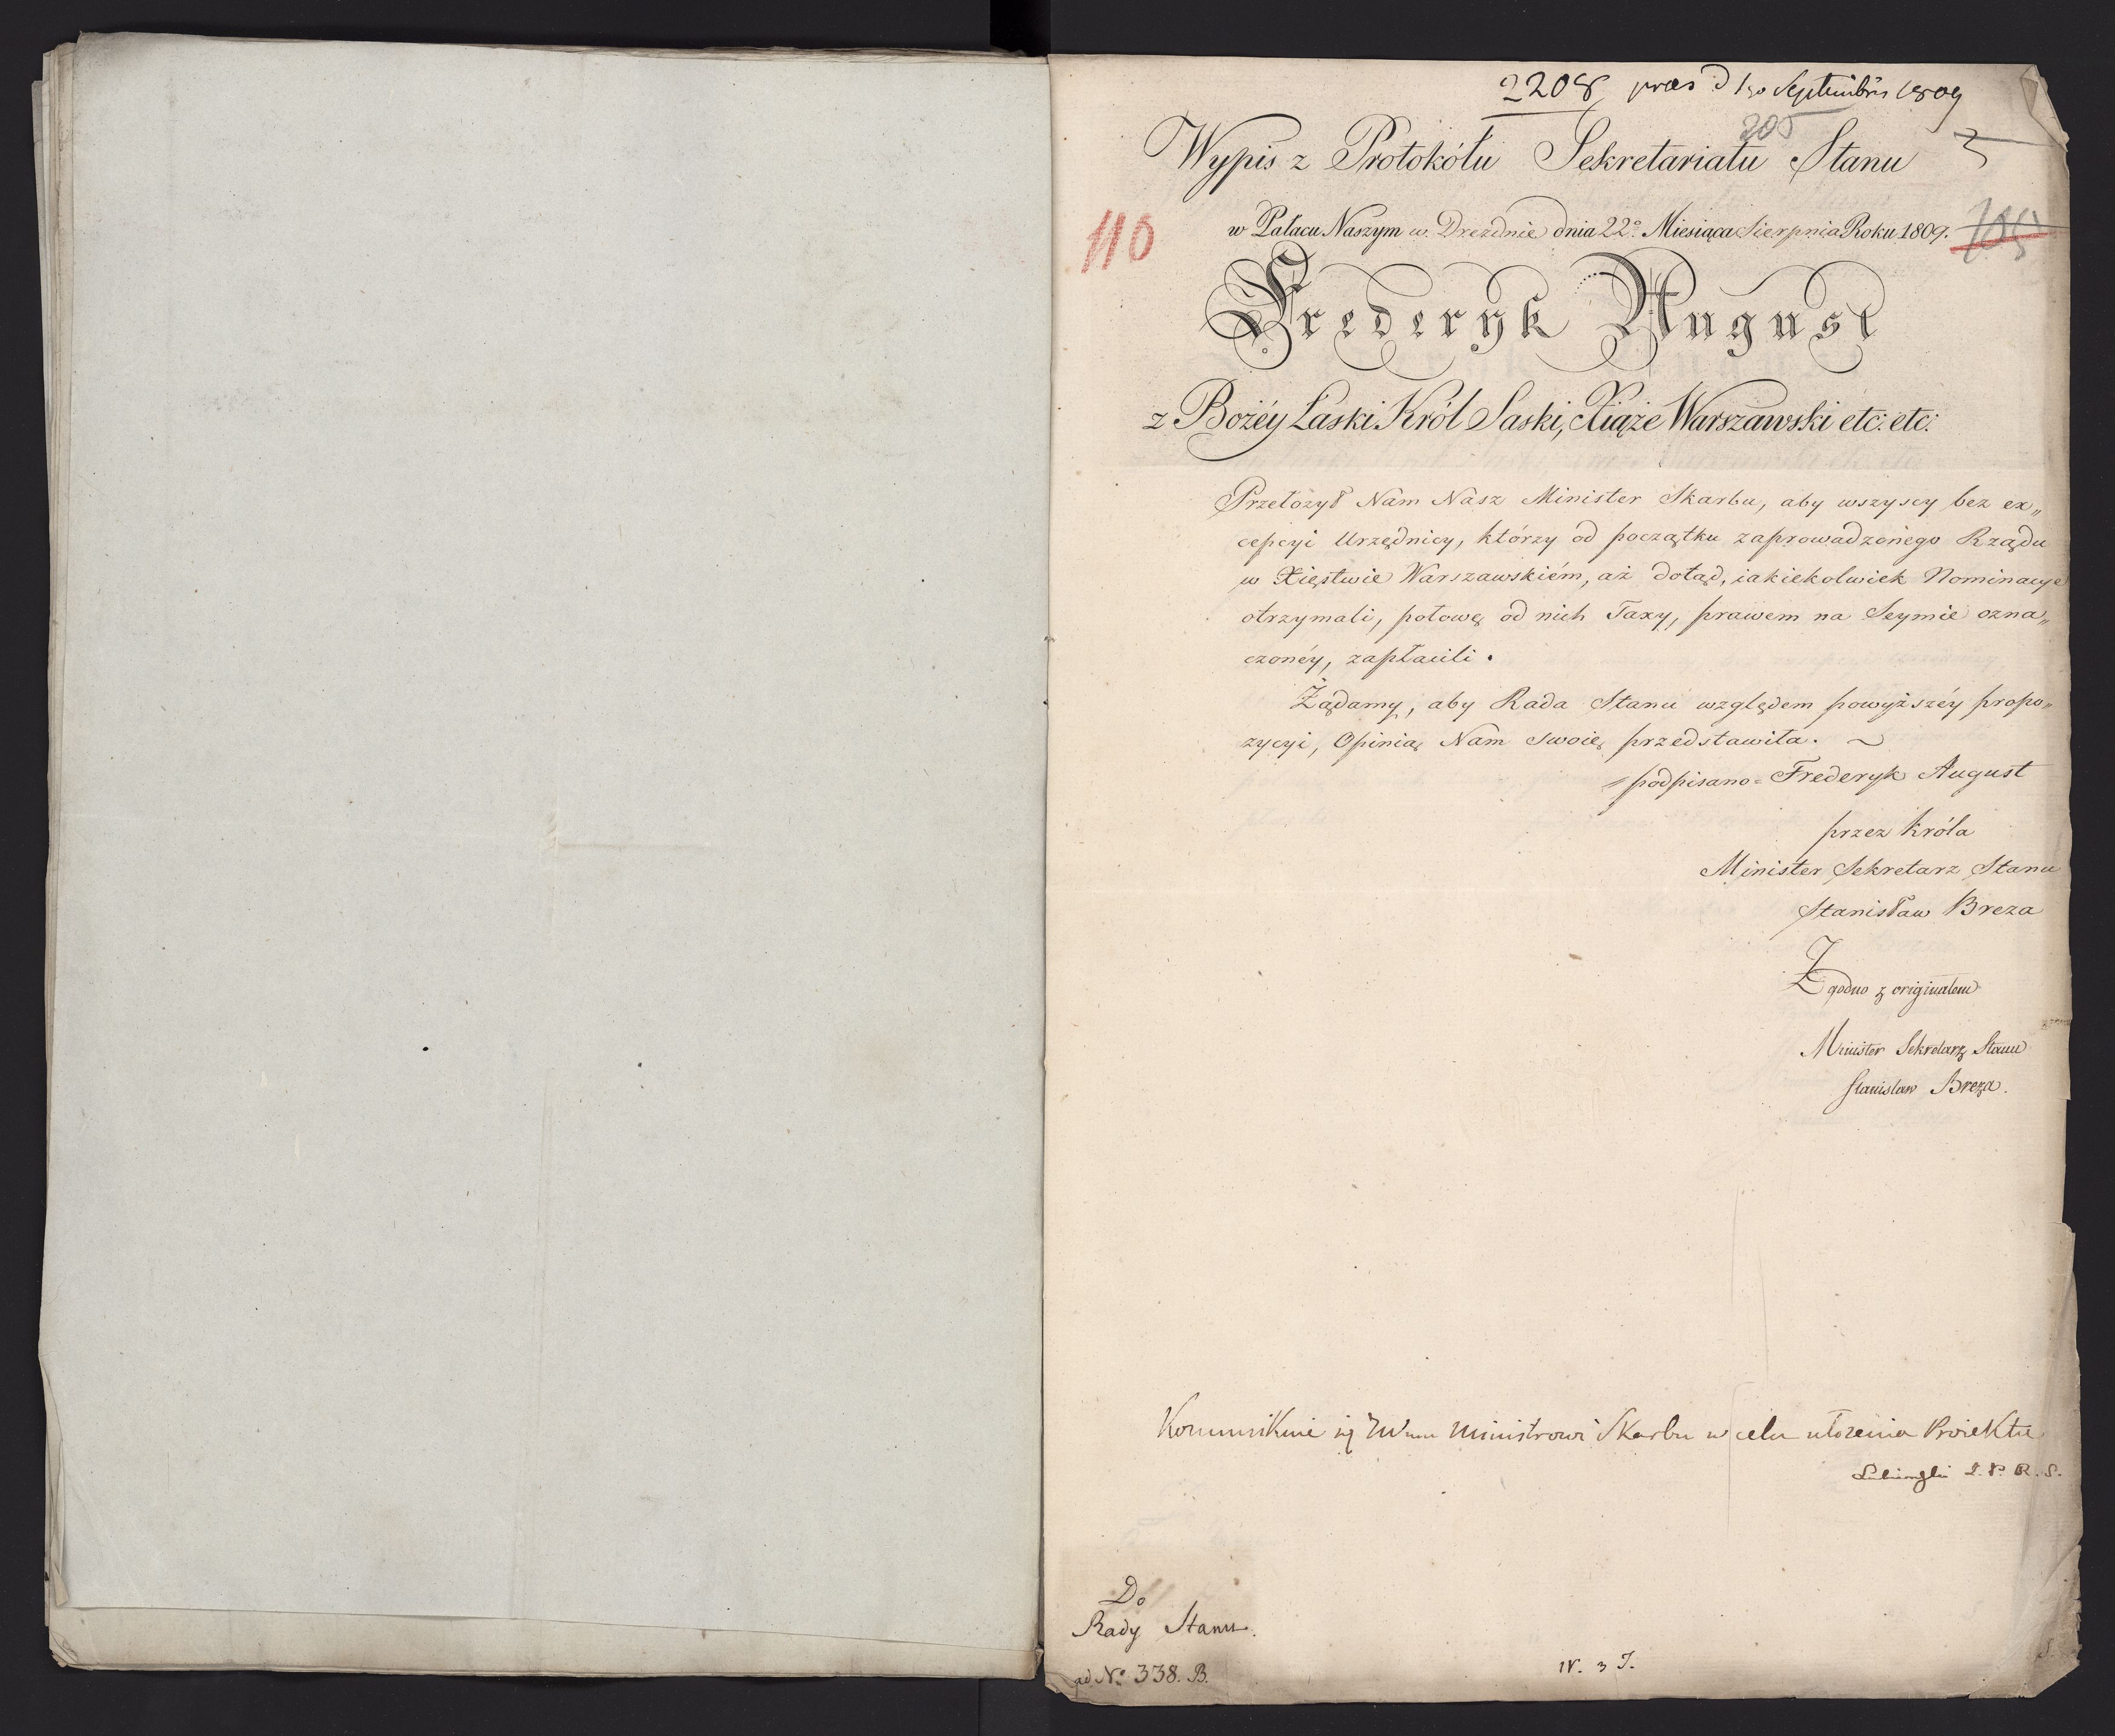 2208 præs d 1 Septembris 1809
205
Wypis z Protokółu Sekretariatu Stanu
w Pałacu Naszym w Dreźdnie dnia 22º Miesiąca Sierpnia Roku 1809.
110
Frederyk August
z Bożéy Łaski Król Saski, Xiąże Warszawski etc: etc:
Przełożył Nam Nasz Minister Skarbu, aby wszyscy bez ex„
cepcyi Urzędnicy, którzy od początku zaprowadzonego Rządu
w Xięstwie Warszawskiém, aż dotąd, iakiekolwiek Nominacye
otrzymali, połowę od nich Taxy, prawem na Seymie ozna„
czonéy, zapłacili.
Żądamy, aby Rada Stanu względem powyższéy propo„
zycyi, Opinią Nam swoię przedstawiła.
podpisano = Frederyk August
przez Króla
Minister Sekretarz Stanu
Stanisław Breza
Zgodno z originałem
Minister Sekretarz Stanu
Stanislaw Breza.
Kommunikuie się Ministrowi Skarbu w celu ułożenia Proiektu
P. R. S.
Do
Rady Stanu.
ad Nº 338. B.